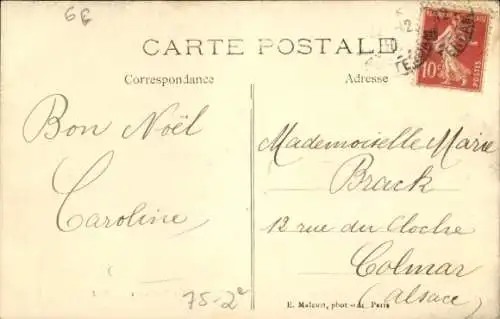 6€
CARTE POSTALE
Correspondance
Adresse
10c
POSTES
Bon Noël
Caroline
Mademoiselle Marie
Brack
12 rue du Cloche
Colmar
(Alsace)
75-2e
E. Malcuit, phot-éd. Paris